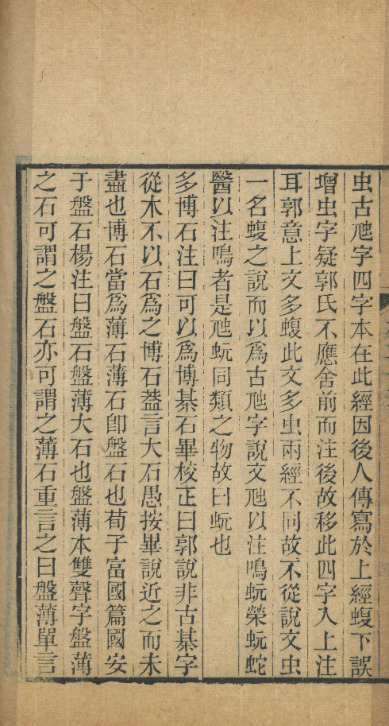 虫古虺字四字本在此經因後人傳寫於上經蝮下誤
增虫字疑郭氏不應舍前而注後故移此四字入上注
耳郭意上文多蝮此文多虫兩經不同故不從說文虫
一名蝮之說而以爲古虺字說文虺以注鳴蚖榮蚖蛇
醫以注鳴者是虺蚖同類之物故曰蚖也
多博石注曰可以爲博棊石畢校正曰郭說非古棊字
從木不以石爲之博石葢言大石愚按畢說近之而未
盡也博石當爲薄石薄石卽盤石也荀子富國篇國安
于盤石楊注曰盤石盤薄大石也盤薄本雙聲字盤薄
之石可謂之盤石亦可謂之薄石重言之曰盤薄單言